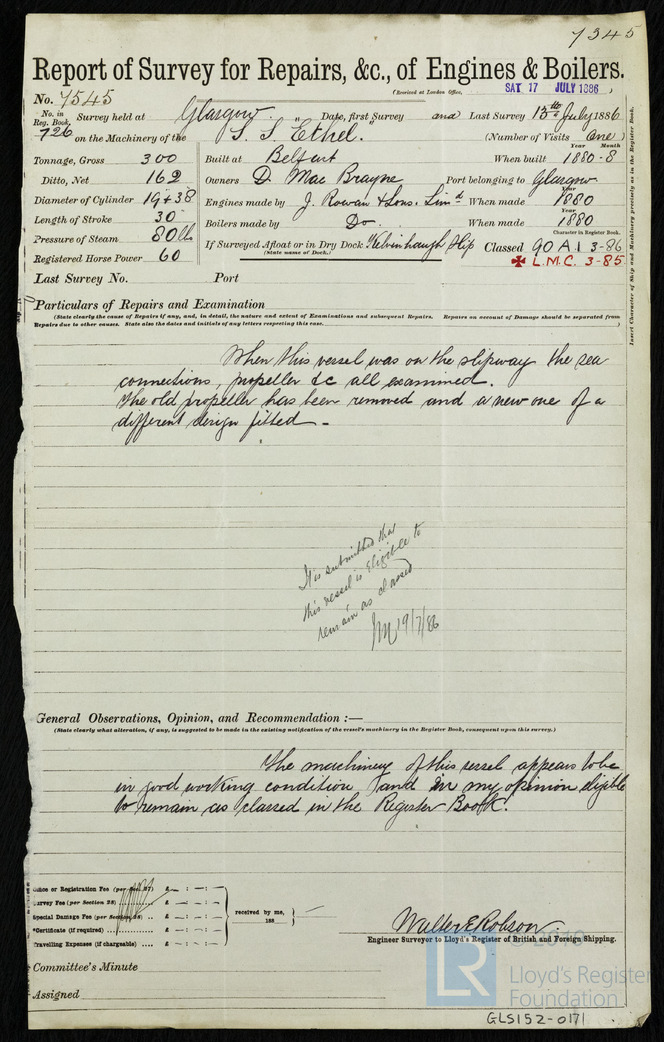 7345
Report of Survey for Repairs, &c., of Engines & Boilers.
(Received at London Office, SAT 17 JULY 1886 )
No. 7545
No. in Reg. Book. 726 Survey held at Glasgow. Date, first Survey and Last Survey 13th July 1886
on the Machinery of the S. S. "Ethel." (Number of Visits One )
Tonnage, Gross 300 Built at Belfast When built Year 1880 - Month 8
Ditto, Net 162 Owners D. Mac Brayne Port belonging to Glasgow
Diameter of Cylinder 19 & 38 Engines made by J. Rowan & Sons. Limd When made Year 1880
Length of Stroke 30 Boilers made by Do When made Year 1880
Pressure of Steam 80 lbs If Surveyed Afloat or in Dry Dock Kelvinhaugh Slip Classed Character in Register Book. 90 A 1 3-86
(State name of Dock.)
Registered Horse Power 60 L.M.C. 3-85
Last Survey No. Port
Insert Character of Ship and Machinery precisely as in the Register Book.
Particulars of Repairs and Examination
(State clearly the cause of Repairs if any, and, in detail, the nature and extent of Examinations and subsequent Repairs. Repairs on account of Damage should be separated from
Repairs due to other causes. State also the dates and initials of any letters respecting this case. )
When this vessel was on the slipway the sea
connections, propeller &c all examined.
The old propeller has been removed and a new one of a
different design fitted -
It is submitted that
this vessel is eligible to
remain as classed
19/7/86
General Observations, Opinion, and Recommendation :—
(State clearly what alteration, if any, is suggested to be made in the existing notification of the vessel's machinery in the Register Book, consequent upon this survey.)
The machinery of this vessel appears to be
in good working condition and in my opinion eligible
to remain as classed in the Register Book.
Office or Registration Fee (per Sec. 27) £ — : — : —
Survey Fee (per Section 28) £ — : — : —
Special Damage Fee (per Section 28) .. £ — : — : —
*Certificate (if required) .... £ — : — : —
Travelling Expenses (if chargeable) .... £ — : — : —
received by me,
188
Walter E Robson
Engineer Surveyor to Lloyd's Register of British and Foreign Shipping.
Committee's Minute
Assigned
LR
© 2019
Lloyd's Register
Foundation
GLS152-0171